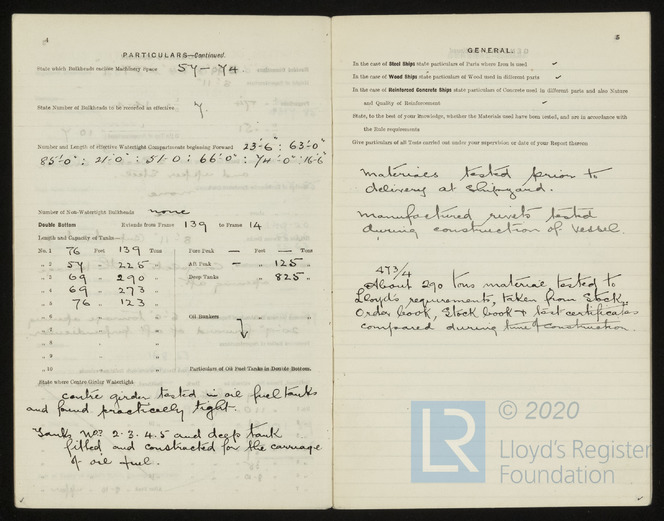 4
PARTICULARS—Continued.
State which Bulkheads enclose Machinery Space 54 – 74.
State Number of Bulkheads to be recorded in effective 7.
Number and Length of effective Watertight Compartments beginning Forward 23'-6" : 63'-0" :
85'-0" : 21'-0 : 51'-0 : 66'0" : 74'-0" : 16'-6"
Number of Non-Watertight Bulkheads none
Double Bottom Extends from Frame 139 to Frame 14
Length and Capacity of Tanks—
No. 1 76 Feet 139 Tons Fore Peak — Feet — Tons
„ 2 54 „ 225 „ Aft Peak — „ 125 „
„ 3 69 „ 290 „ Deep Tanks „ 825 „
„ 4 69 „ 273 „
„ 5 76 „ 123 „
„ 6 „ „ Oil Bunkers
„ 7 „ „
„ 8 „ „
„ 9 „ „
„ 10 „ „ Particulars of Oil Fuel Tanks in Double Bottom.
State where Centre Girder Watertight
centre girder tested in oil fuel tanks
and found practically tight.
Tanks Nos 2. 3. 4. 5 and deep tank
fitted and constructed for the carriage
of oil fuel.
5
GENERAL.
In the case of Steel Ships state particulars of Parts where Iron is used ✓
In the case of Wood Ships state particulars of Wood used in different parts ✓
In the case of Reinforced Concrete Ships state particulars of Concrete used in different parts and also Nature
and Quality of Reinforcement ✓
State, to the best of your knowledge, whether the Materials used have been tested, and are in accordance with
the Rule requirements
Give particulars of all Tests carried out under your supervision or date of your Report thereon
Materials tested prior to
delivery at Shipyard.
Manufactured rivets tested
during construction of vessel.
473/4
About 290 tons material, tested to
Lloyd's requirements, taken from Stock,
Order book, Stock book & test certificates
compared during time of construction.
LR © 2020
Lloyd's Register
Foundation